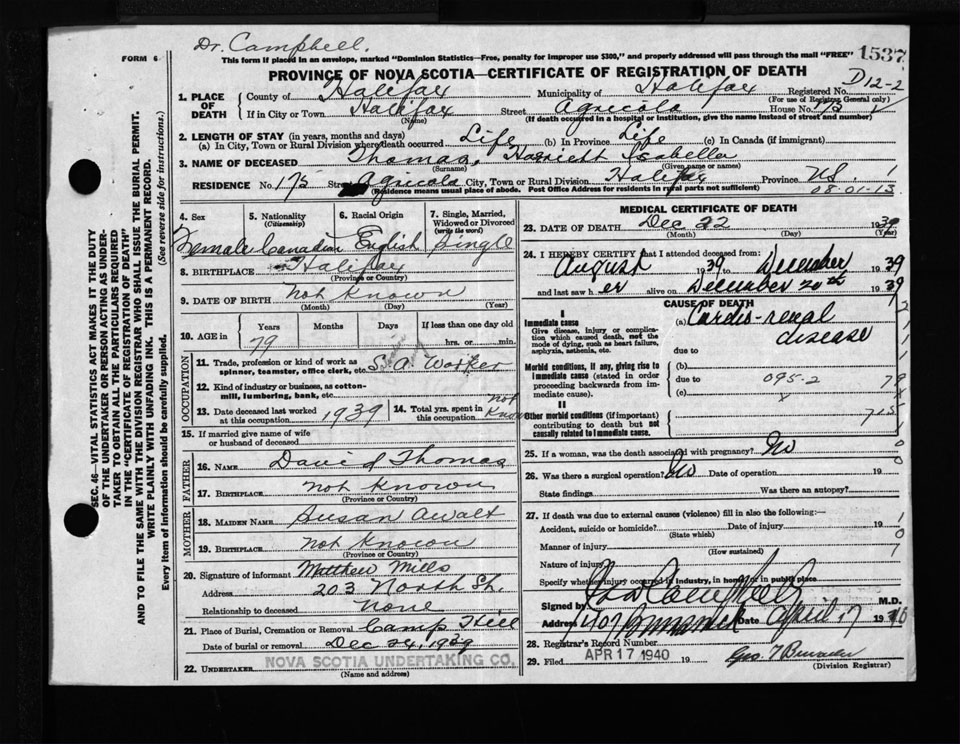 Dr. Campbell.
FORM 6
This form if placed in an envelope, marked "Dominion Statistics—Free, penalty for improper use $300," and properly addressed will pass through the mail "FREE"
1537
PROVINCE OF NOVA SCOTIA—CERTIFICATE OF REGISTRATION OF DEATH
D12-2
1. PLACE OF DEATH
County of Halifax Municipality of Halifax Registered No.
(For use of Registrar General only)
If in City or Town Halifax Street Agricola House No. 175
(Name) (If death occurred in a hospital or institution, give the name instead of street and number)
2. LENGTH OF STAY (in years, months and days)
(a) In City, Town or Rural Division where death occurred Life (b) In Province Life (c) In Canada (if immigrant)
3. NAME OF DECEASED Thomas, Harriett Isabella
(Surname) (Given name or names)
RESIDENCE No. 175 Street Agricola City, Town or Rural Division Halifax Province NS.
(Residence means usual place of abode. Post Office Address for residents in rural parts not sufficient)
08-01-13
4. Sex
Female
5. Nationality (Citizenship)
Canadian
6. Racial Origin
English
7. Single, Married, Widowed or Divorced (write the word)
Single
8. BIRTHPLACE Halifax
(Province or Country)
9. DATE OF BIRTH Not Known
(Month) (Day) (Year)
10. AGE in Years Months Days If less than one day
79 hrs. or min.
OCCUPATION
11. Trade, profession or kind of work as spinner, teamster, office clerk, etc. S.A. Worker
12. Kind of industry or business, as cotton-mill, lumbering, bank, etc.
13. Date deceased last worked at this occupation 1939
14. Total yrs. spent in this occupation Not Known
15. If married give name of wife or husband of deceased
FATHER
16. NAME David Thomas
17. BIRTHPLACE Not Known
(Province or Country)
MOTHER
18. MAIDEN NAME Susan Awalt
19. BIRTHPLACE Not Known
(Province or Country)
20. Signature of informant Matthew Mills
Address 203 North St.
Relationship to deceased None
21. Place of Burial, Cremation or Removal Camp Hill
Date of burial or removal Dec 24, 1939
22. UNDERTAKER NOVA SCOTIA UNDERTAKING CO.
(Name and address)
MEDICAL CERTIFICATE OF DEATH
23. DATE OF DEATH Dec 22 1939
(Month) (Day) (Year)
24. I HEREBY CERTIFY that I attended deceased from:
August 1939 to December 1939
and last saw her alive on December 20th 1939
CAUSE OF DEATH
I
Immediate cause
Give disease, injury or complication which caused death, not the mode of dying, such as heart failure, asphyxia, asthenia, etc.
(a) Cardio-renal disease
due to
Morbid conditions, if any, giving rise to immediate cause (stated in order proceeding backwards from immediate cause).
(b)
due to 095-2
(c)
II
Other morbid conditions (if important) contributing to death but not causally related to immediate cause.
25. If a woman, was the death associated with pregnancy? No
26. Was there a surgical operation? No Date of operation 19
State findings Was there an autopsy?
27. If death was due to external causes (violence) fill in also the following:—
Accident, suicide or homicide? Date of injury 19
(State which)
Manner of injury
(How sustained)
Nature of injury
Specify whether injury occurred in industry, in home or in public place
Signed by M.D.
Address 407 Date April 17 1940
28. Registrar's Record Number
29. Filed APR 17 1940 19 Geo. T
(Division Registrar)
SEC. 46—VITAL STATISTICS ACT MAKES IT THE DUTY OF THE UNDERTAKER OR PERSON ACTING AS UNDERTAKER TO OBTAIN ALL THE PARTICULARS REQUIRED IN THE "CERTIFICATE OF REGISTRATION OF DEATH"
AND TO FILE THE SAME WITH THE DIVISION REGISTRAR WHO SHALL ISSUE THE BURIAL PERMIT.
WRITE PLAINLY WITH UNFADING INK. THIS IS A PERMANENT RECORD.
Every item of information should be carefully supplied. (See reverse side for instructions.)